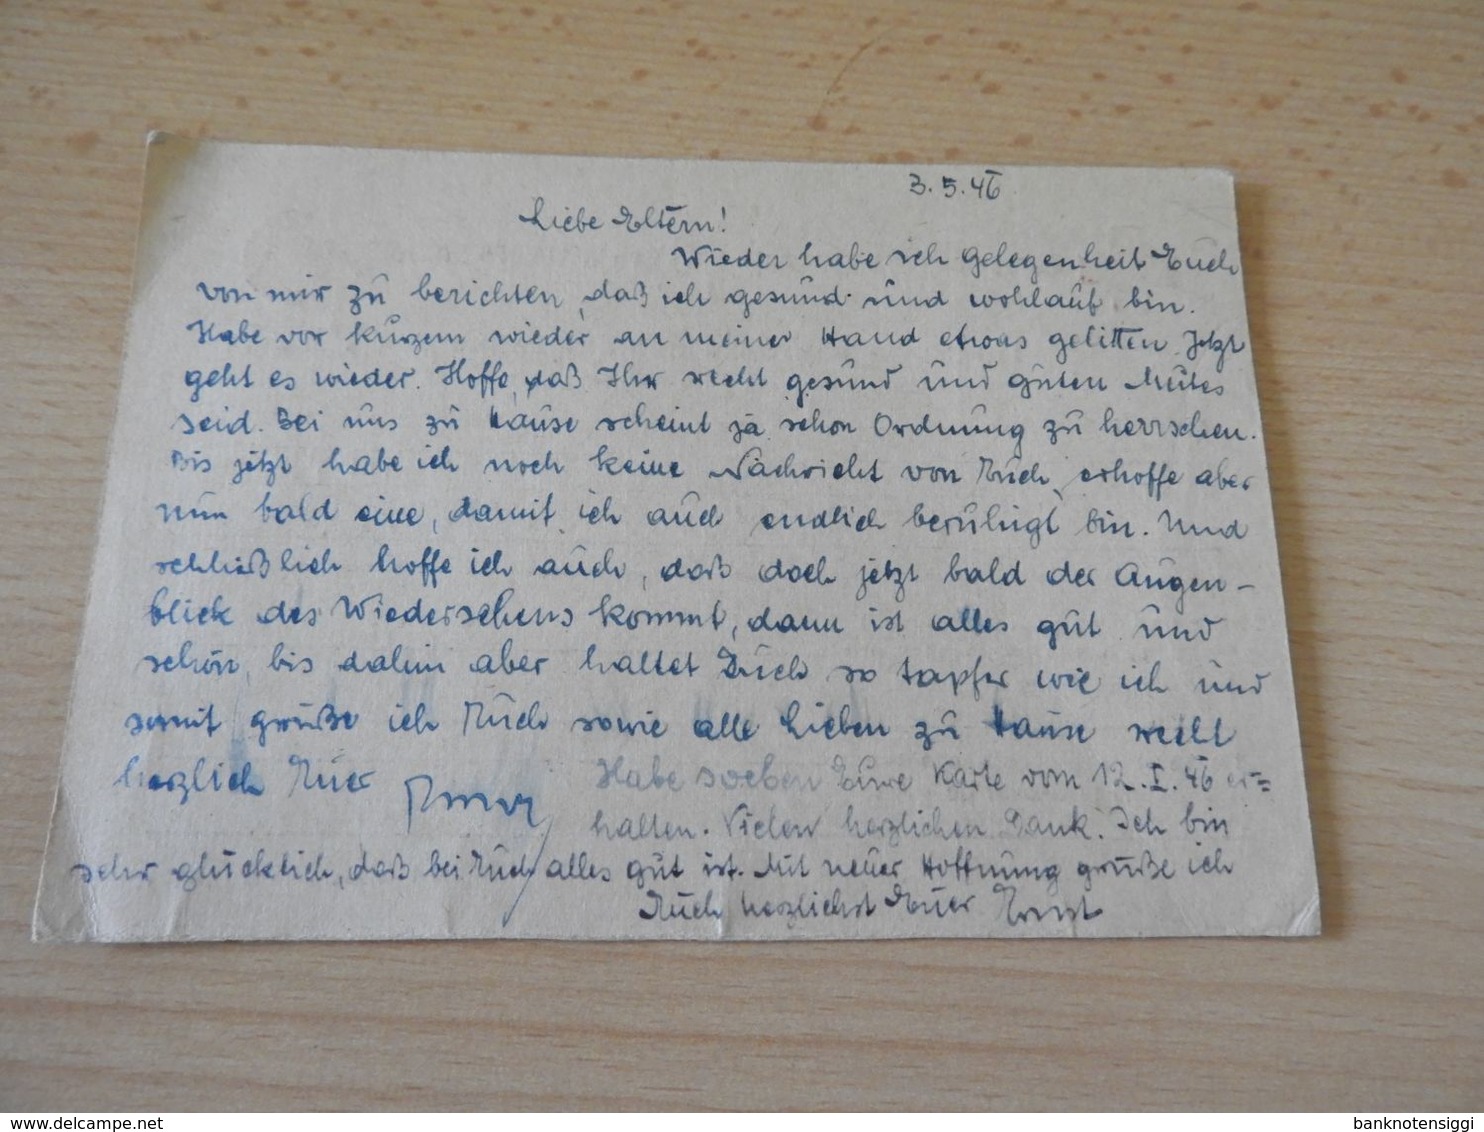 3.5.46
Liebe Eltern!
Wieder habe ich Gelegenheit Euch
von mir zu berichten, daß ich gesund und wohlauf bin.
Habe vor kurzem wieder an meiner Hand etwas gelitten. Jetzt
geht es wieder. Hoffe, daß Ihr recht gesund und guten Mutes
seid. Bei uns zu Hause scheint ja schon Ordnung zu herrschen.
Bis jetzt habe ich noch keine Nachricht von Euch, erhoffe aber
nun bald eine, damit ich auch endlich beruhigt bin. Und
schließlich hoffe ich auch, daß doch jetzt bald der Augen-
blick des Wiedersehens kommt, dann ist alles gut und
schön, bis dahin aber haltet Euch so tapfer wie ich und
somit grüße ich Euch sowie alle Lieben zu Hause recht
herzlich Euer Ernst
Habe soeben Eure Karte vom 12.I.46 er=
halten. Vielen herzlichen Dank. Ich bin
sehr glücklich, daß bei Euch alles gut ist. Mit neuer Hoffnung grüße ich
Euch herzlichst Euer Ernst
banknotensiggi